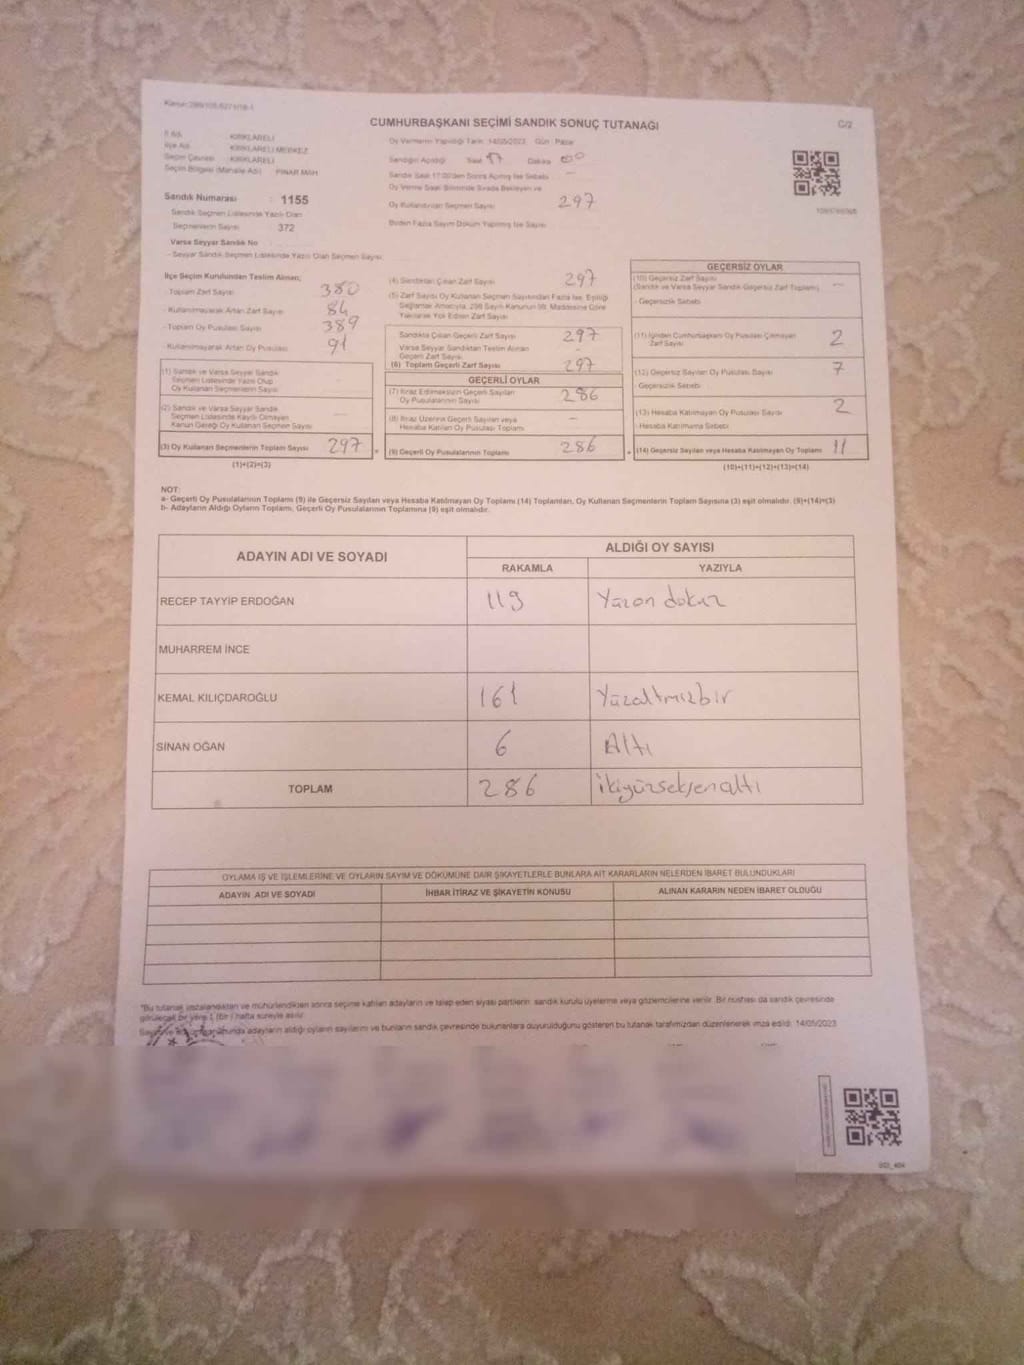 CUMHURBAŞKANI SEÇİMİ SANDIK SONUÇ TUTANAĞI
C/2
İl Adı : KIRKLARELİ
İlçe Adı : KIRKLARELİ MERKEZ
Seçim Çevresi : KIRKLARELİ
Seçim Bölgesi (Mahalle Adı) : PINAR MAH
Sandık Numarası : 1155
Sandık Seçmen Listesinde Yazılı Olan
Seçmenlerin Sayısı : 372
Varsa Seyyar Sandık No
- Seyyar Sandık Seçmen Listesinde Yazılı Olan Seçmen Sayısı:
Oy Vermenin Yapıldığı Tarih: 14/05/2023 Gün : Pazar
Sandığın Açıldığı Saat 17 Dakika 00
Sandık Saat 17:00'den Sonra Açılmış İse Sebebi -
Oy Verme Saati Bitiminde Sırada Bekleyen ve
Oy Kullandırılan Seçmen Sayısı 297
Birden Fazla Sayım Döküm Yapılmış İse Sayısı
İlçe Seçim Kurulundan Teslim Alınan;
- Toplam Zarf Sayısı 380
- Kullanılmayarak Artan Zarf Sayısı 84
- Toplam Oy Pusulası Sayısı 389
- Kullanılmayarak Artan Oy Pusulası 91
(1) Sandık ve Varsa Seyyar Sandık
Seçmen Listesinde Yazılı Olup
Oy Kullanan Seçmenlerin Sayısı
(2) Sandık ve Varsa Seyyar Sandık
Seçmen Listesinde Kayıtlı Olmayan
Kanun Gereği Oy Kullanan Seçmen Sayısı
(3) Oy Kullanan Seçmenlerin Toplam Sayısı 297
(1)+(2)=(3)
(4) Sandıktan Çıkan Zarf Sayısı 297
(5) Zarf Sayısı Oy Kullanan Seçmen Sayısından Fazla İse, Eşitliği
Sağlamak Amacıyla, 298 Sayılı Kanunun 98. Maddesine Göre
Yakılarak Yok Edilen Zarf Sayısı
Sandıkta Çıkan Geçerli Zarf Sayısı 297
Varsa Seyyar Sandıktan Teslim Alınan
Geçerli Zarf Sayısı -
(6) Toplam Geçerli Zarf Sayısı 297
GEÇERLİ OYLAR
(7) İtiraz Edilmeksizin Geçerli Sayılan
Oy Pusulalarının Sayısı 286
(8) İtiraz Üzerine Geçerli Sayılan veya
Hesaba Katılan Oy Pusulası Toplamı -
(9) Geçerli Oy Pusulalarının Toplamı 286
GEÇERSİZ OYLAR
(10) Geçersiz Zarf Sayısı
(Sandık ve Varsa Seyyar Sandık Geçersiz Zarf Toplamı) -
- Geçersizlik Sebebi
(11) İçinden Cumhurbaşkanı Oy Pusulası Çıkmayan
Zarf Sayısı 2
(12) Geçersiz Sayılan Oy Pusulası Sayısı 7
- Geçersizlik Sebebi
(13) Hesaba Katılmayan Oy Pusulası Sayısı 2
- Hesaba Katılmama Sebebi
(14) Geçersiz Sayılan veya Hesaba Katılmayan Oy Toplamı 11
(10)+(11)+(12)+(13)=(14)
NOT:
a- Geçerli Oy Pusulalarının Toplamı (9) ile Geçersiz Sayılan veya Hesaba Katılmayan Oy Toplamı (14) Toplamları, Oy Kullanan Seçmenlerin Toplam Sayısına (3) eşit olmalıdır. (9)+(14)=(3)
b- Adayların Aldığı Oyların Toplamı, Geçerli Oy Pusulalarının Toplamına (9) eşit olmalıdır.
ADAYIN ADI VE SOYADI
ALDIĞI OY SAYISI
RAKAMLA YAZIYLA
RECEP TAYYİP ERDOĞAN 119 Yüzon dokuz
MUHARREM İNCE
KEMAL KILIÇDAROĞLU 161 Yüzaltmışbir
SİNAN OĞAN 6 Altı
TOPLAM 286 ikiyüzseksenaltı
OYLAMA İŞ VE İŞLEMLERİNE VE OYLARIN SAYIM VE DÖKÜMÜNE DAİR ŞİKAYETLERLE BUNLARA AİT KARARLARIN NELERDEN İBARET BULUNDUKLARI
ADAYIN ADI VE SOYADI İHBAR İTİRAZ VE ŞİKAYETİN KONUSU ALINAN KARARIN NEDEN İBARET OLDUĞU
*Bu tutanak imzalandıktan ve mühürlendikten sonra seçime katılan adayların ve talep eden siyasi partilerin sandık kurulu üyelerine veya gözlemcilerine verilir. Bir nüshası da sandık çevresinde
görülecek bir yere 1 (bir) hafta süreyle asılır.
adayların aldığı oyların sayılarını ve bunların sandık çevresinde bulunanlara duyurulduğunu gösteren bu tutanak tarafımızdan düzenlenerek imza edildi. 14/05/2023